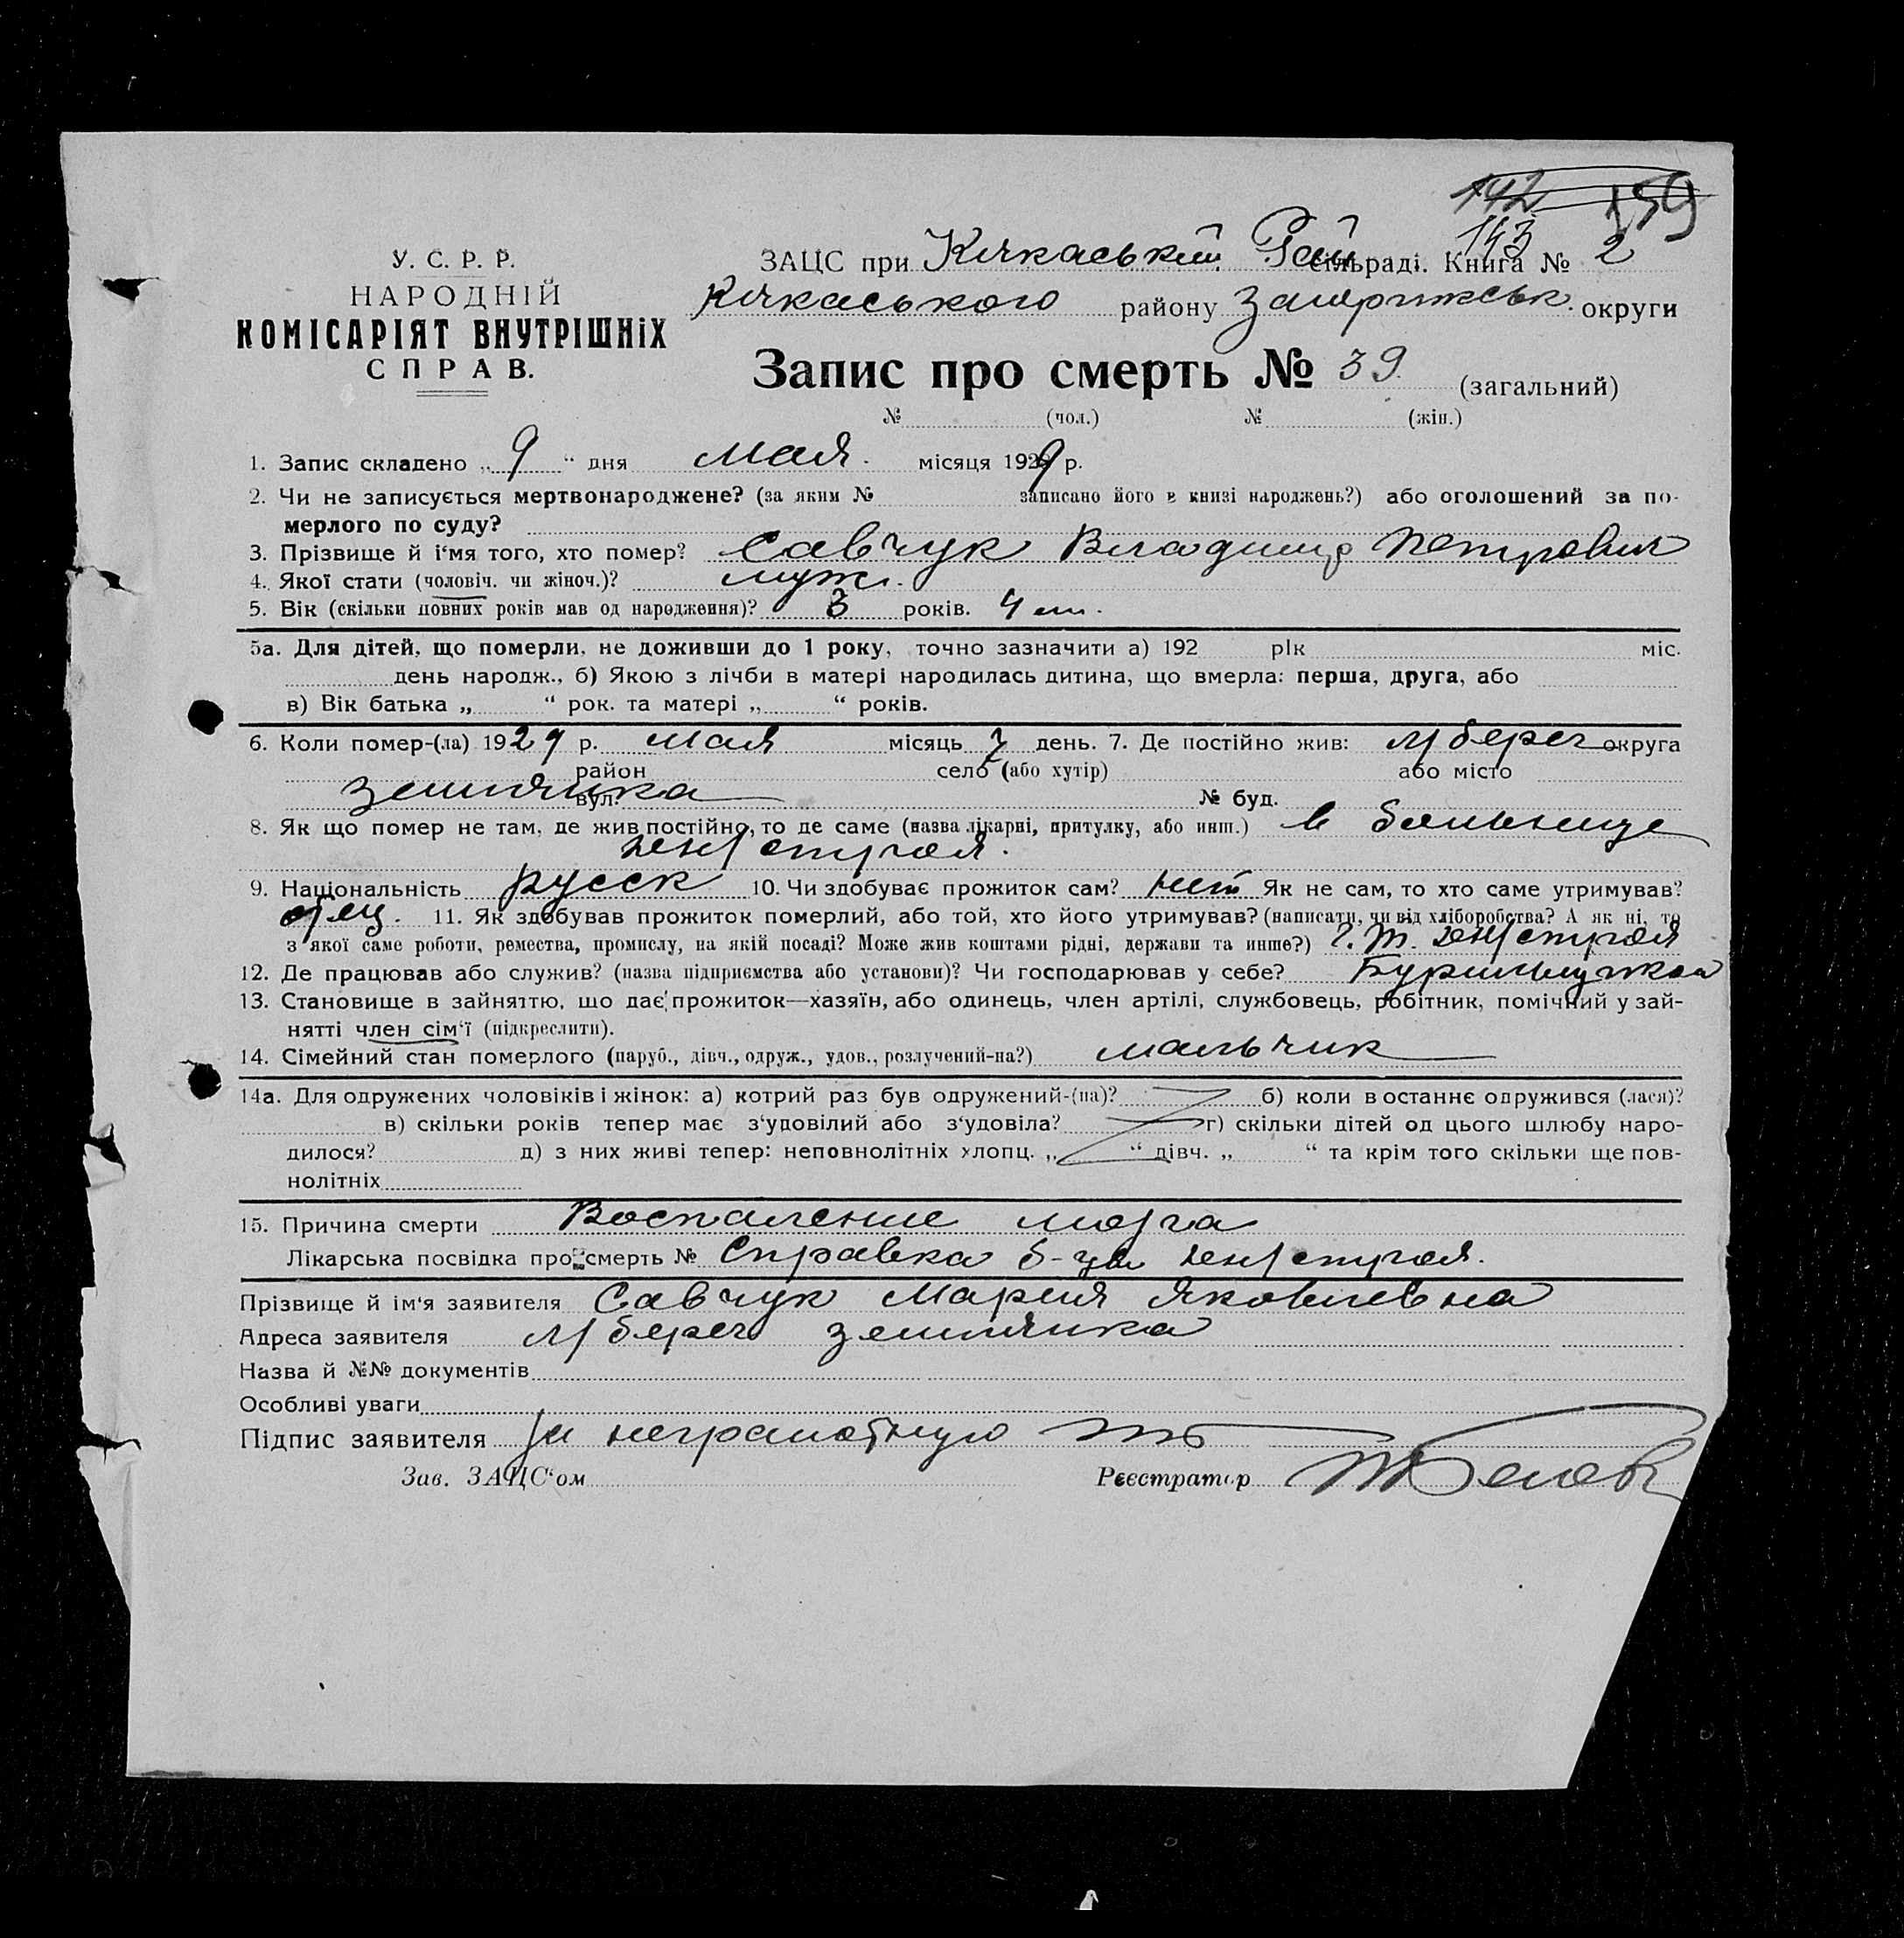 142 159
143
У. С. Р. Р. ЗАЦС при Кічкаський Рай сільраді. Книга № 2
НАРОДНІЙ Кічкаського району Запоріжськ. округи
КОМІСАРІЯТ ВНУТРІШНІХ
СПРАВ.
Запис про смерть № 39 (загальний)
№ (чол.) № (жін.)
1. Запис складено „ 9 “ дня мая. місяця 1929 р.
2. Чи не записується мертвонароджене? (за яким № записано його в книзі народжень?) або оголошений за по-
мерлого по суду?
3. Прізвище й і‘мя того, хто помер? Савчук Владимир Петрович
4. Якої стати (чоловіч. чи жіноч.)? мужс.
5. Вік (скільки повних років мав од народження)? 3 років. 4 м.
5а. Для дітей, що померли, не доживши до 1 року, точно зазначити а) 192 рік міс.
день народж., б) Якою з лічби в матері народилась дитина, що вмерла: перша, друга, або
в) Вік батька „ “ рок. та матері „ “ років.
6. Коли помер-(ла) 1929 р. мая місяць 7 день. 7. Де постійно жив: пр берег округа
район село (або хутір) або місто
землянка вул. № буд.
8. Як що помер не там, де жив постійно, то де саме (назва лікарні, притулку, або инш.) в больнице
Днепрстроя.
9. Національність русск 10. Чи здобуває прожиток сам? нет Як не сам, то хто саме утримував?
отец. 11. Як здобував прожиток померлий, або той, хто його утримував? (написати, чи від хліборобства? А як ні, то
з якої саме роботи, ремества, промислу, на якій посаді? Може жив коштами рідні, держави та инше?)
12. Де працював або служив? (назва підприємства або установи)? Чи господарював у себе?
13. Становище в зайняттю, що дає прожиток—хазяїн, або одинець, член артілі, службовець, робітник, помічний у зай-
нятті член сім‘ї (підкреслити).
14. Сімейний стан померлого (паруб., дівч., одруж., удов., розлучений-на?) мальчик
14а. Для одружених чоловіків і жінок: а) котрий раз був одружений-(на)? б) коли в останнє одружився (лася)?
в) скільки років тепер має з‘удовілий або з‘удовіла? г) скільки дітей од цього шлюбу наро-
дилося? д) з них живі тепер: неповнолітніх хлопц. „ “ дівч. „ “ та крім того скільки ще пов-
нолітніх
15. Причина смерти Воспаление мозга
Лікарська посвідка про смерть № Справка б-цы Днепрстроя.
Прізвище й ім‘я заявителя Савчук Мария Яковлевна
Адреса заявителя пр берег землянка
Назва й №№ документів
Особливі уваги
Підпис заявителя за неграмотную
Зав. ЗАЦС‘ом Реєстратор